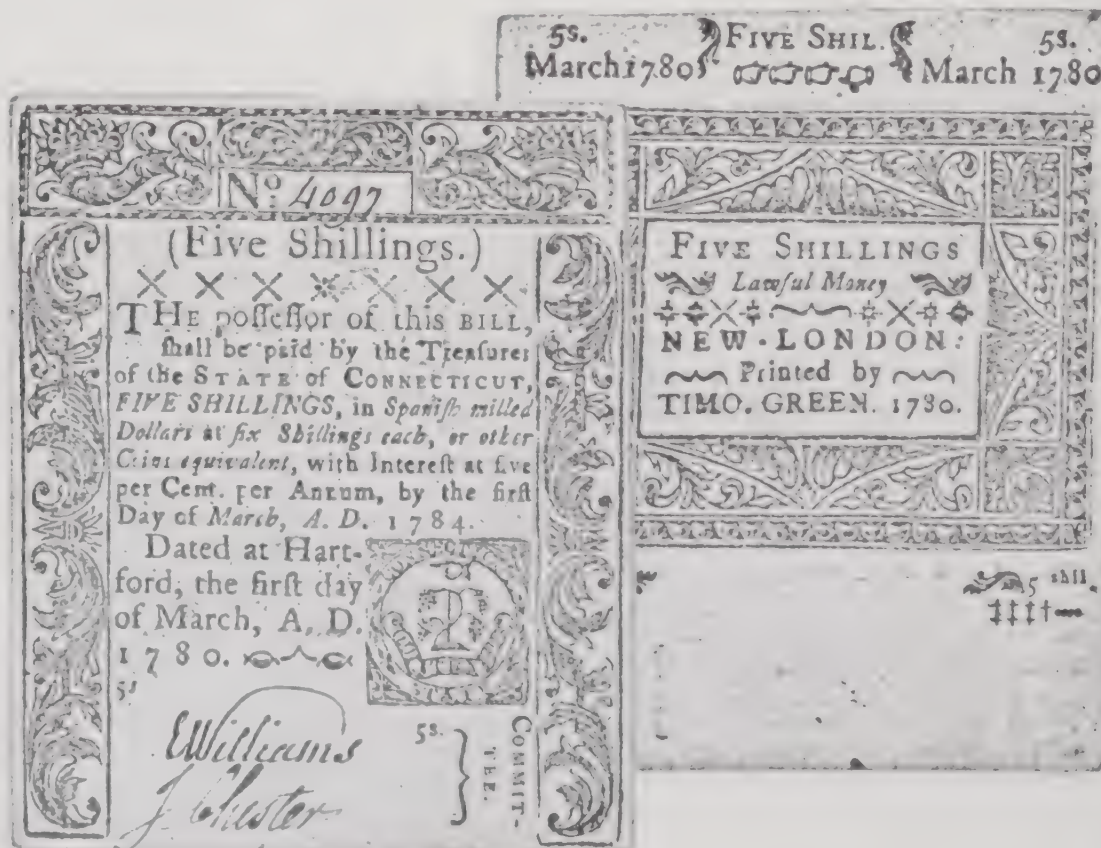 5s. FIVE SHIL. 5s.
March 1780 March 1780
No. 4097
(Five Shillings.)
THE poſſeſſor of this BILL,
ſhall be paid by the Treaſurer
of the STATE of CONNECTICUT,
FIVE SHILLINGS, in Spaniſh milled
Dollars at ſix Shillings each, or other
Coins equivalent, with Intereſt at five
per Cent. per Annum, by the firſt
Day of March, A. D. 1784.
Dated at Hart-
ford, the firſt day
of March, A. D.
1780.
5s
5s.
EWilliams
J. Chester
COMMIT-
TEE.
FIVE SHILLINGS
Lawful Money
NEW-LONDON:
Printed by
TIMO. GREEN. 1780.
5 shill